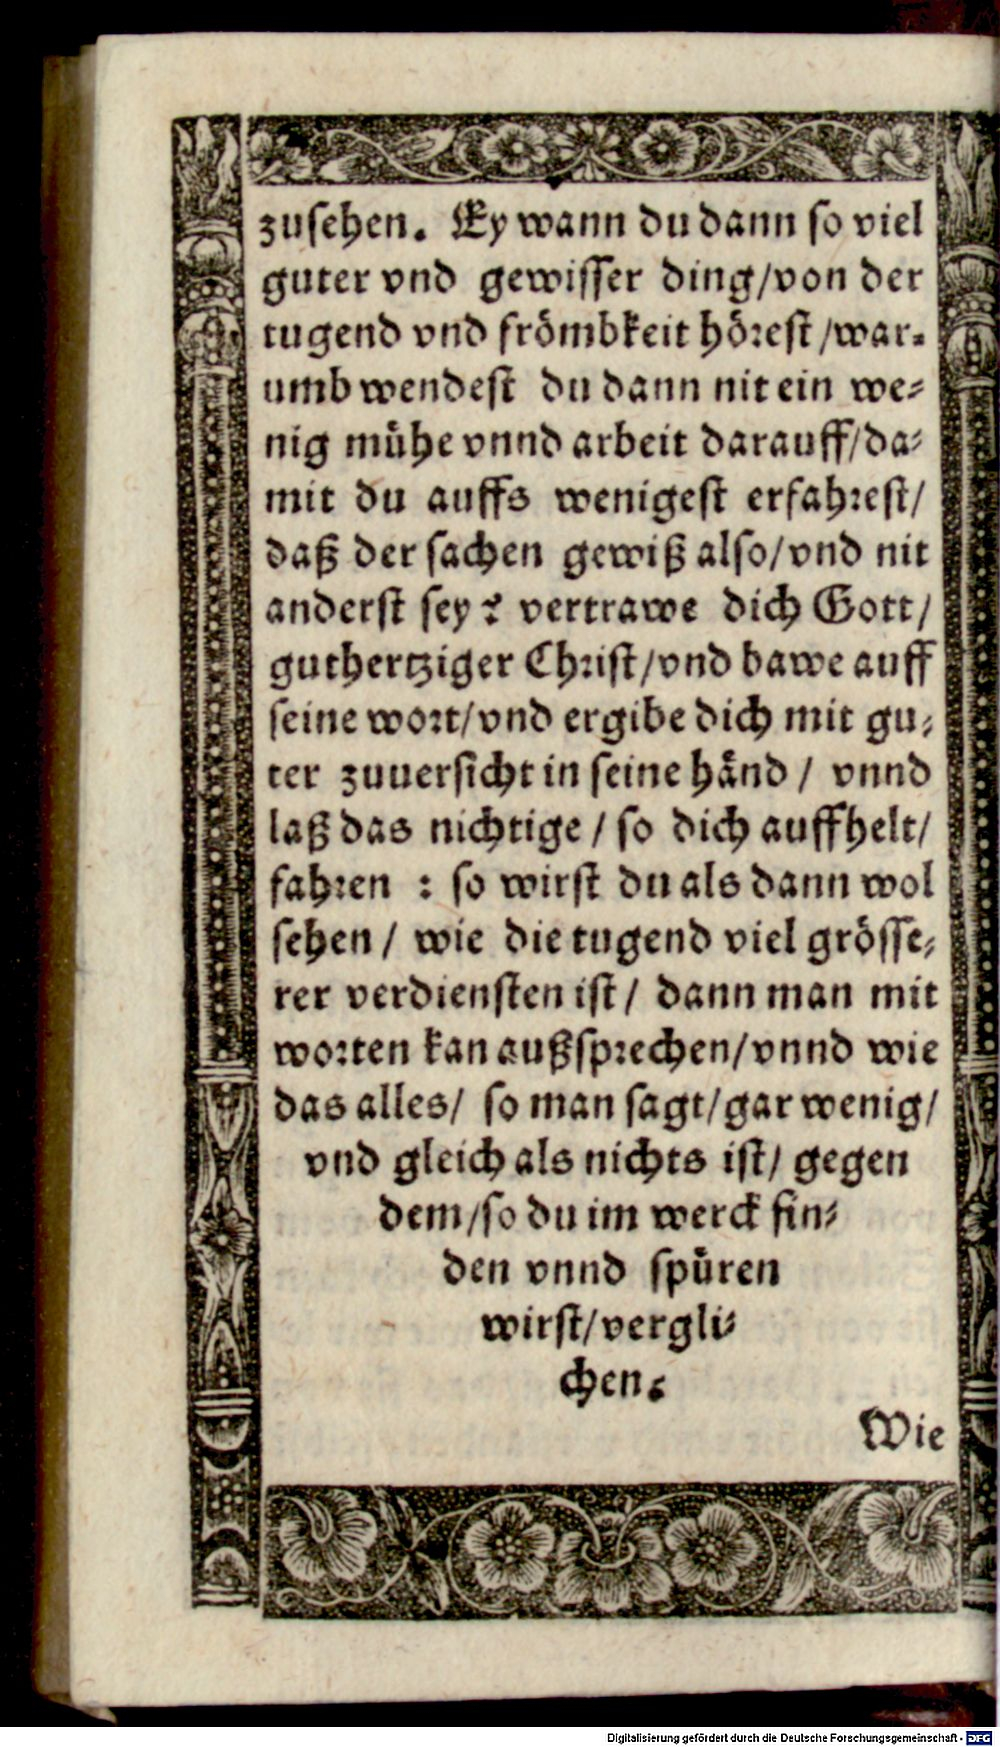 zusehen. Ey wann du dann so viel
guter vnd gewisser ding/von der
tugend vnd frömbkeit hörest/war-
umb wendest du dann nit ein we-
nig mühe vnnd arbeit darauff/da-
mit du auffs wenigest erfahrest/
daß der sachen gewiß also/vnd nit
anderst sey? vertrawe dich Gott/
guthertziger Christ/vnd bawe auff
seine wort/vnd ergibe dich mit gu-
ter zuuersicht in seine händ/ vnnd
laß das nichtige/ so dich auffhelt/
fahren : so wirst du als dann wol
sehen/ wie die tugend viel grösse-
rer verdiensten ist/ dann man mit
worten kan außsprechen/vnnd wie
das alles/ so man sagt/gar wenig/
vnd gleich als nichts ist/ gegen
dem/so du im werck fin-
den vnnd spüren
wirst/vergli-
chen.
Wie
Digitalisierung gefördert durch die Deutsche Forschungsgemeinschaft - DFG